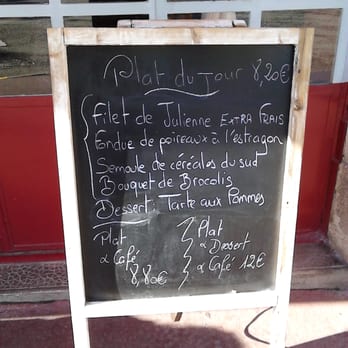 Plat du Jour 8,20€
Filet de Julienne EXTRA FRAIS
Fondue de poireaux à l'estragon
Semoule de céréales du sud
Bouquet de Brocolis
Dessert: Tarte aux Pommes
Plat
& Café
8,80€
Plat
& Dessert
& Café 12€